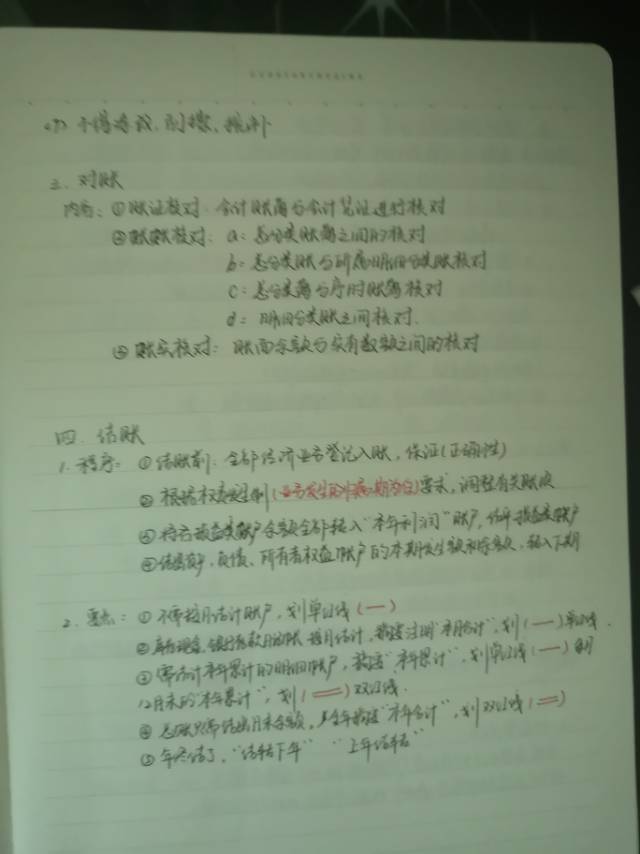 不得涂改、刮擦、挖补
三. 对账
内容: ①账证核对: 会计账簿与会计凭证进行核对
②账账核对: a: 总分类账簿之间的核对
b: 总分类账与所属明细分类账核对
c: 总分类簿与序时账簿核对
d: 明细分类账之间核对.
③账实核对: 账面余额与实有数额之间的核对
四. 结账
1. 程序: ①结账前: 全部经济业务登记入账, 保证(正确性)
②根据权责发生制(业务发生的归属期为位)要求, 调整有关账项
③将各损益类账户余额全部转入“本年利润”账户, 结平损益类账户
④结出资产, 负债、所有者权益账户的本期发生额和余额, 转入下期
2. 要点: ①不需按月结计账户, 划单红线(—)
②库存现金、银行存款日记账 按月结计, 摘要注明“本月合计”, 划(—)单红线.
③需结计本年累计的明细账户, 摘要“本年累计”, 划单红线(—)
12月末的“本年累计”, 划(═)双红线.
④总账只需结出月末余额, 摘要“本年合计”, 划双红线(═)
⑤年终结了, “结转下年” “上年结转”